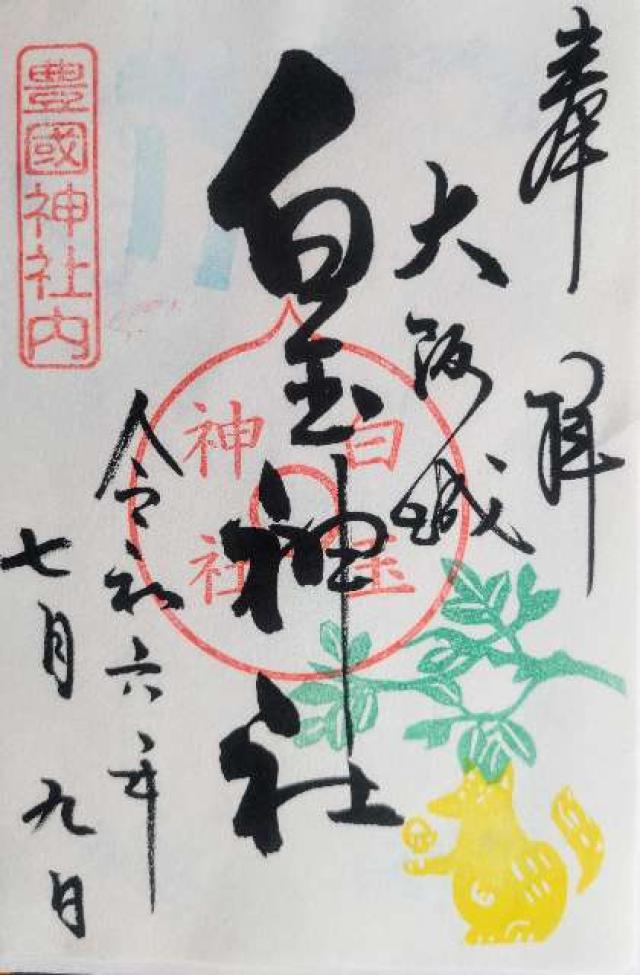 奉拝
大阪城
白玉神社
令和六年
七月九日
豊國神社内
白玉
神社